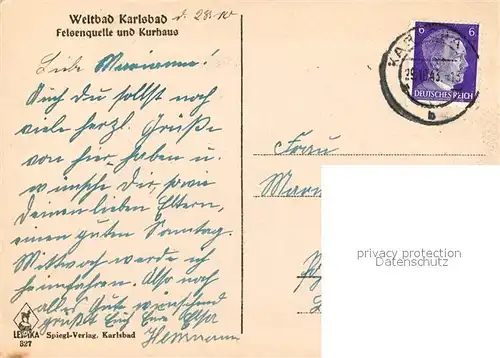 Weltbad Karlsbad
Felsenquelle und Kurhaus
d. 28.10
Liebe Marianne!
Auch du sollst noch
viele herzl. Grüße
von hier haben u.
wünsche Dir, sowie
deinen lieben Eltern,
einen guten Sonntag.
Mittwoch werde ich
heimfahren. Also noch
alles Gute wünschend
grüßt Euch Eure Elsa
Hermann
LEDERKA Spiegl-Verlag, Karlsbad
527
6 6
DEUTSCHES REICH
b
Frau
privacy protection
Datenschutz